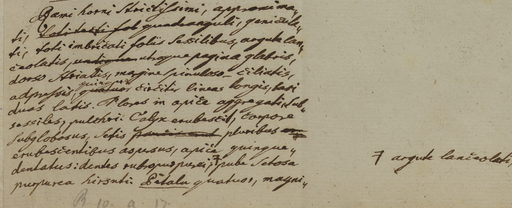 Rami horni strictissimi, approxima-
ti, subquadranguli, genicula-
ti, toti imbricati foliis sessilibus, argute lan-
ceolatis, utraque pagina glabris,
dorso striatis, margine spinuloso-ciliatis,
adpressis, quinque circiter lineas longis, basi
duas latis. Flores in apice aggregati, sub-
sessiles, pulchri. Calyx erubescit, corpore
subglobosus, setis pluribus
erubescentibus asperus, apice quinque-
dentatus: dentes pube setosa
purpurea hirsuti. Petala quatuor, magni-
7 argute lanceolati,